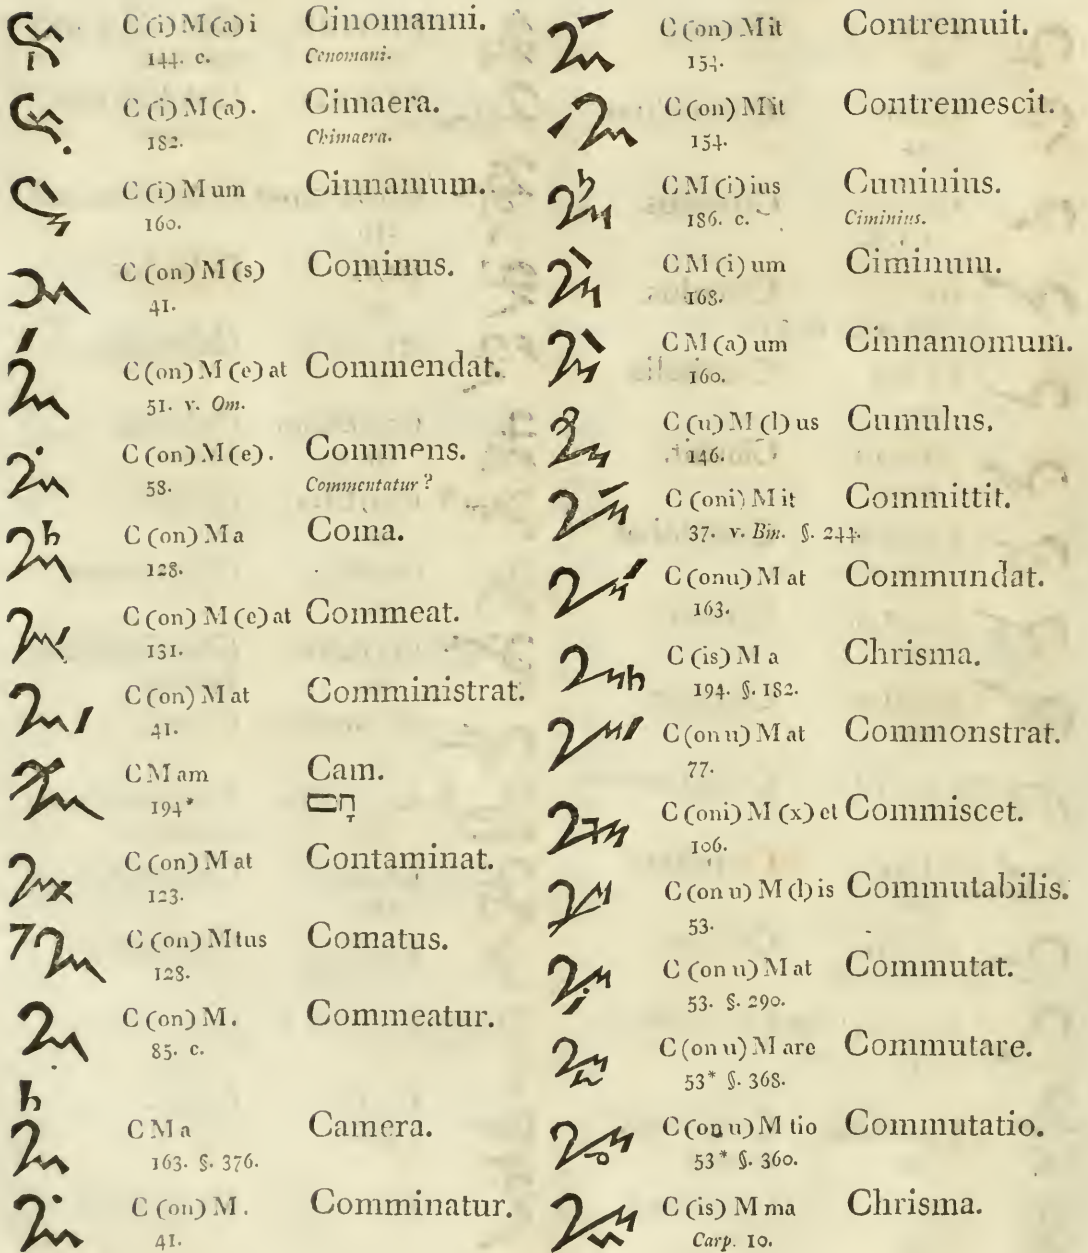 C (i) M (a) i Cinomanni.
144. c. Cenomani.
C (i) M (a). Cimaera.
182. Chimaera.
C (i) M um Cinnamum.
160.
C (on) M (s) Cominus.
41.
C (on) M (e) at Commendat.
51. v. Om.
C (on) M (e). Commens.
58. Commentatur?
C (on) M a Coma.
128.
C (on) M (e) at Commeat.
131.
C (on) M at Comministrat.
41.
C M am Cam.
194* חָם
C (on) M at Contaminat.
123.
C (on) M tus Comatus.
128.
C (on) M. Commeatur.
85. c.
C M a Camera.
163. §. 376.
C (on) M. Comminatur.
41.
C (on) M it Contremuit.
154.
C (on) M it Contremescit.
154.
C M (i) ius Cuminius.
186. c. Ciminius.
C M (i) um Ciminum.
168.
C M (a) um Cinnamomum.
160.
C (u) M (l) us Cumulus.
146.
C (oni) M it Committit.
37. v. Bin. §. 244.
C (onu) M at Commundat.
163.
C (is) M a Chrisma.
194. §. 182.
C (on u) M at Commonstrat.
77.
C (oni) M (x) et Commiscet.
106.
C (on u) M (l) is Commutabilis.
53.
C (on u) M at Commutat.
53. §. 290.
C (on u) M are Commutare.
53* §. 368.
C (on u) M tio Commutatio.
53* §. 360.
C (is) M ma Chrisma.
Carp. 10.